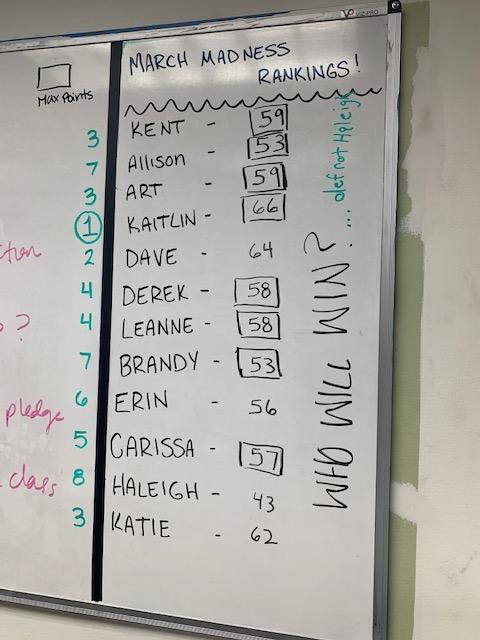 VIZ-PRO
Max Points
MARCH MADNESS
RANKINGS!
3 KENT - 59
7 Allison - 53
3 ART - 59
1 KAITLIN - 66
2 DAVE - 64
4 DEREK - 58
4 LEANNE - 58
7 BRANDY - 53
6 ERIN - 56
5 CARISSA - 57
8 HALEIGH - 43
3 KATIE - 62
WHO WILL WIN?
... def not Haleigh
?
pledge
class